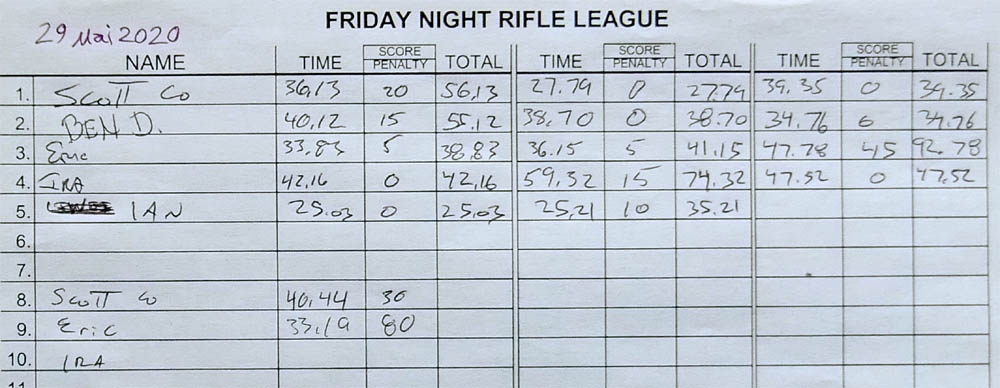 FRIDAY NIGHT RIFLE LEAGUE
29 Mai 2020
NAME TIME SCORE PENALTY TOTAL TIME SCORE PENALTY TOTAL TIME SCORE PENALTY TOTAL
1. Scott Co 36,13 20 56,13 27.79 0 27.79 39.35 0 39.35
2. BEN D. 40,12 15 55,12 38,70 0 38.70 34.76 0 34.76
3. Eric 33.83 5 38.83 36.15 5 41.15 47.78 45 92.78
4. IRA 42,16 0 42,16 59.32 15 74.32 47.52 0 47.52
5. IAN 25.03 0 25.03 25,21 10 35.21
6.
7.
8. Scott Co 40,44 30
9. Eric 33,19 80
10. IRA
11